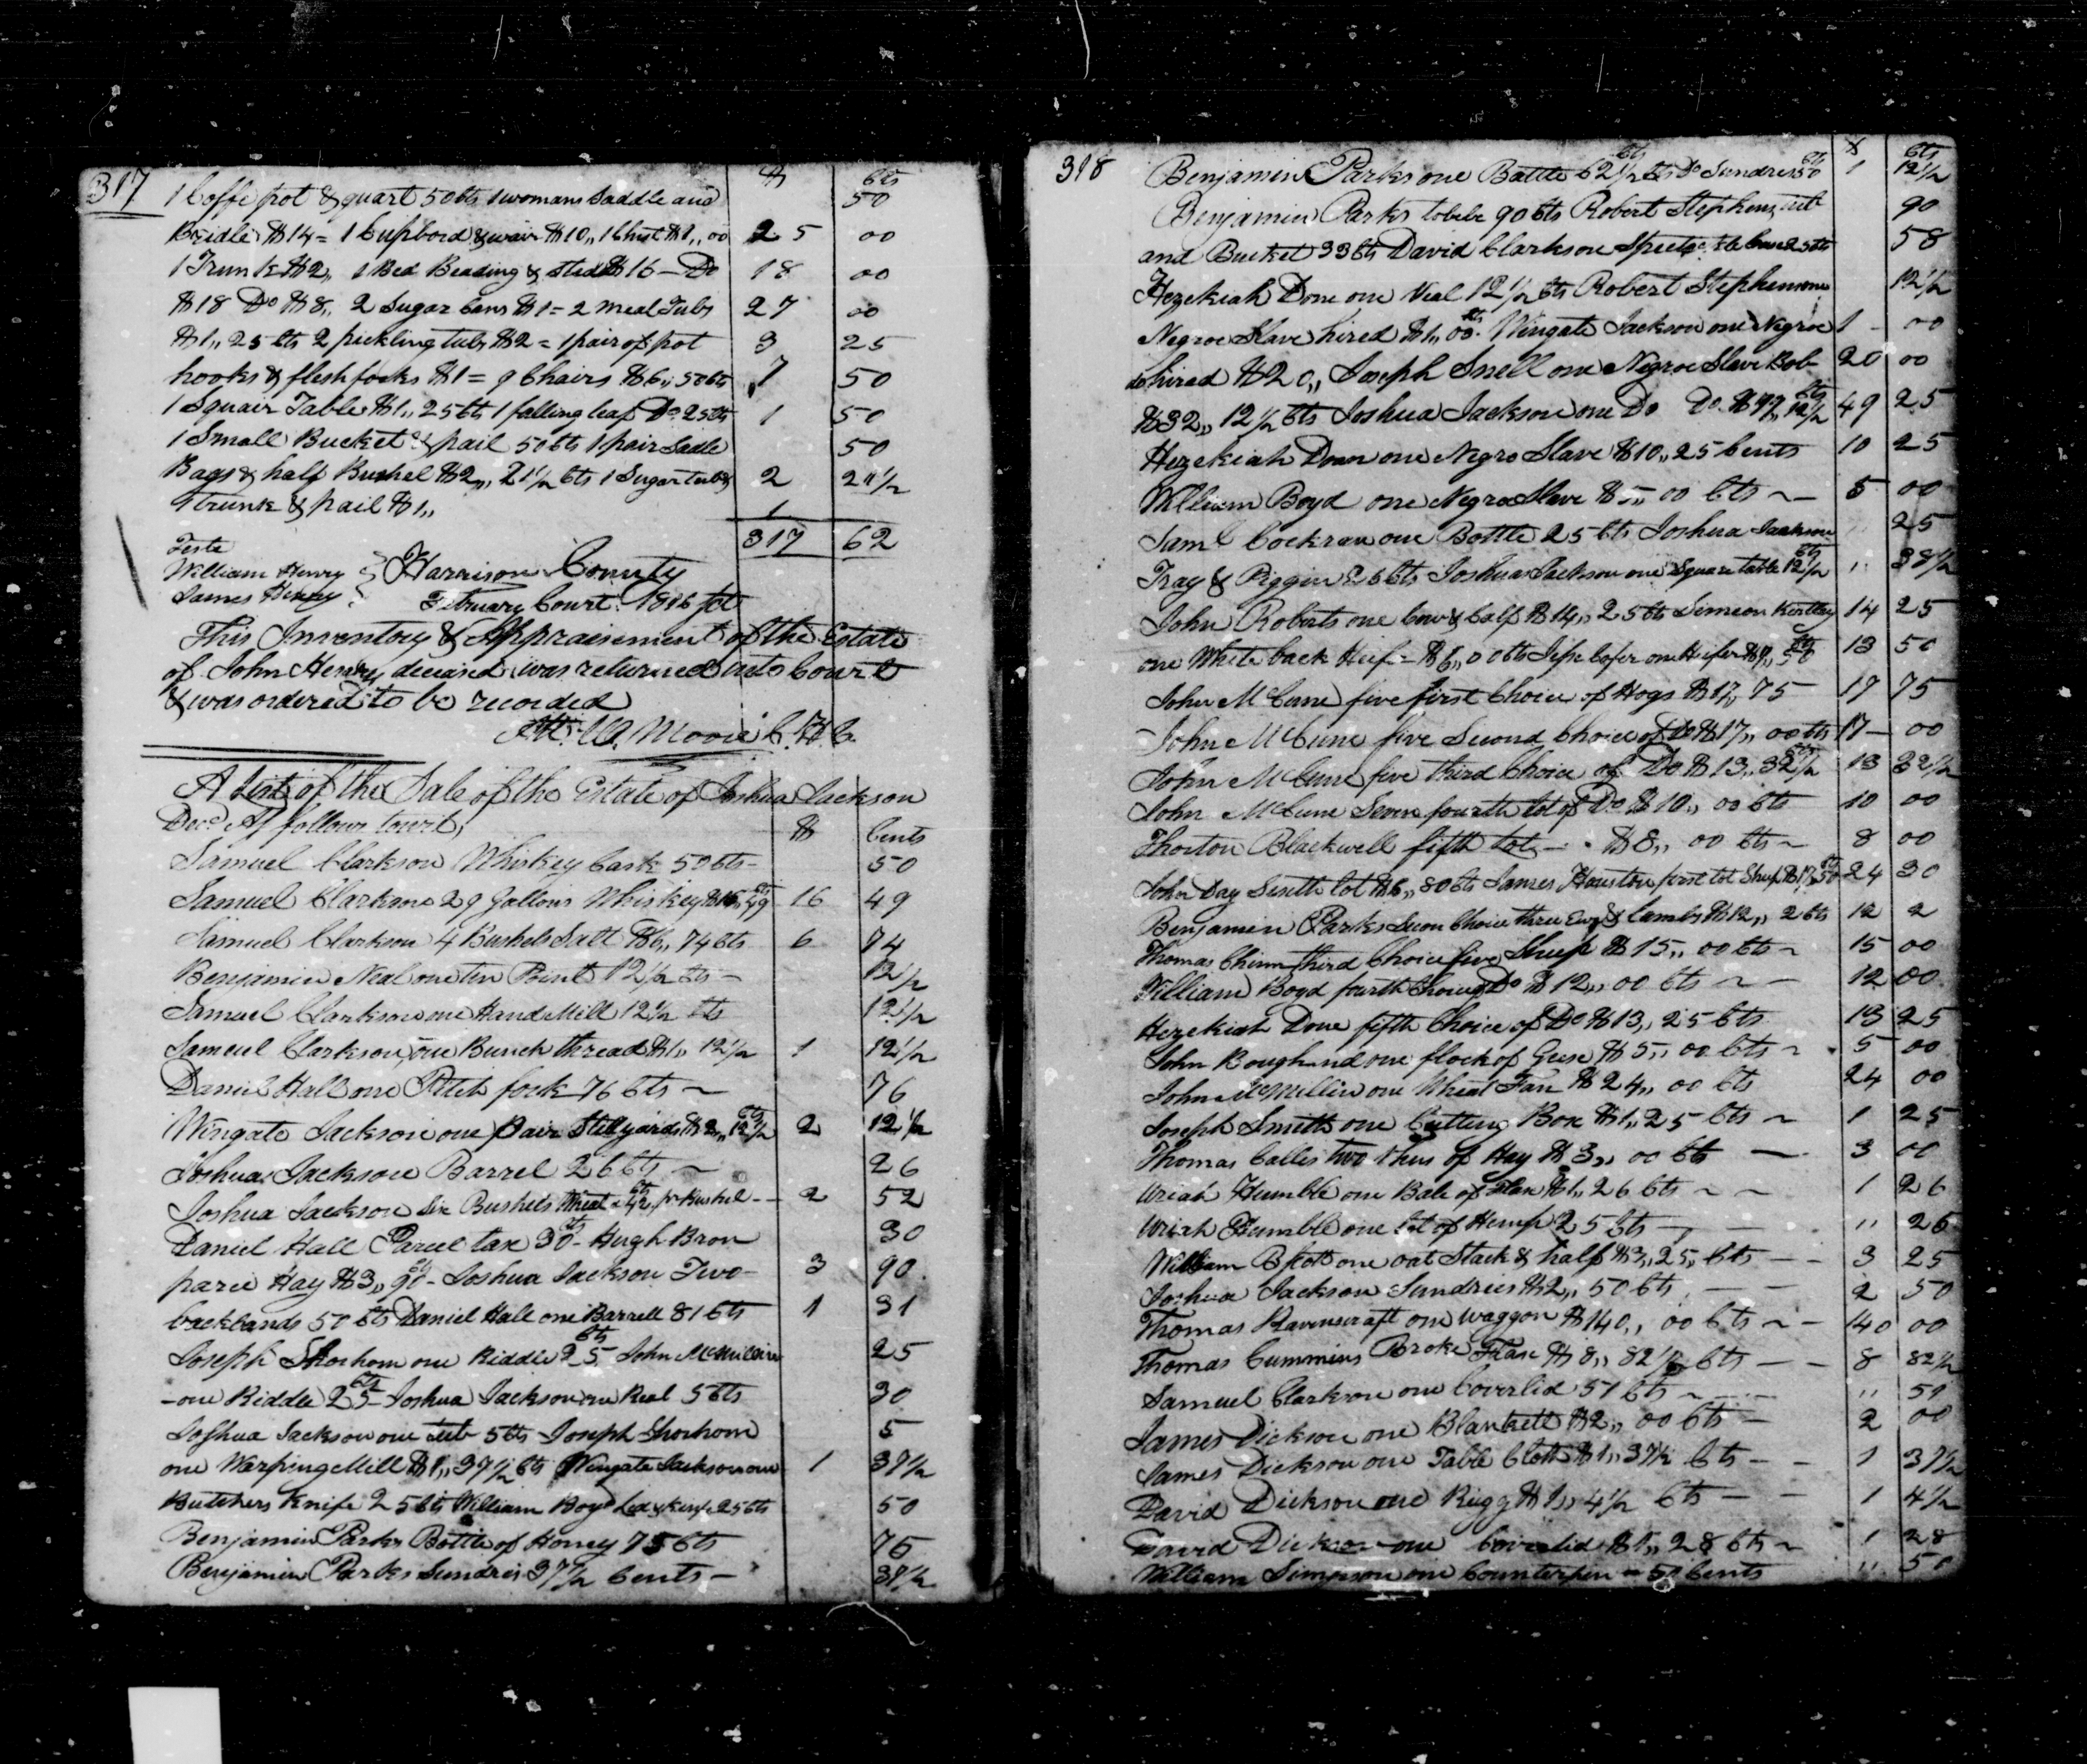 317
$ Cts
1 Coffe pot & quart 50 Cts 1 womans Saddle and 50
Bridle $14 = 1 Cupbord & wair $10,, 1 Chest $1,, 00 25 00
1 Trunk $2,, 1 Bed Beading & sted $16 — Do 18 00
$18 Do $8,, 2 Sugar Cans $1 = 2 meal Tubs 27 00
$1,, 25 Cts 2 pickling tubs $2 = 1 pair of pot 3 25
hooks & flesh forks $1 = 9 Chairs $6,, 50 Cts 7 50
1 Squair Table $1,, 25 Cts 1 falling leaf Do 25 Cts 1 50
1 Small Bucket & pail 50 Cts 1 pair Sadle 50
Bags & half Bushel $2,, 21½ Cts 1 Sugar tub & 2 21½
Trunk & pail $1,, 1
317 62
Teste
William Henry } Harrison County
James Henry } February Court 1816 Sct
This Inventory & Appraisement of the Estate
of John Henry deceased was returned into Court
& was ordered to be recorded
Att. W. Moore C.H.C.
A List of the Sale of the Estate of Joshua Jackson
Decd As follows towit, $ Cents
Samuel Clarkson Whiskey Cask 50 Cts — 50
Samuel Clarkson 29 Gallons Whiskey $16,, 49 Cts 16 49
Samuel Clarkson 4 Bushels Salt $6,, 74 Cts 6 74
Benjamin Neal one tin Point 12½ Cts — 12½
Samuel Clarkson one Hand Mill 12½ Cts 12½
Samuel Clarkson, one Bunch thread $1,, 12½ 1 12½
Daniel Hall one Pitch fork 76 Cts ~ 76
Wingate Jackson one Pair Stillyards $2,, 12½ Cts 2 12½
Joshua Jackson Barrel 26 Cts ~ 26
Joshua Jackson Six Bushels Wheat a 42 Cts pr Bushel — 2 52
Daniel Hall Parcel tax 30 Cts - Hugh Bron 30
parce Hay $3,, 90 Cts - Joshua Jackson Two — 3 90
backbands 50 Cts Daniel Hall one Barrell 81 Cts 1 31
Joseph Shorhom one Riddle 25 Cts John McMillin 25
— one Riddle 25 Cts - Joshua Jackson one Reel 5 Cts 30
Joshua Jackson one Tub 5 Cts Joseph Shorhom 5
one Warping Mill $1,, 37½ Cts Wingate Jackson one 1 37½
Butchers Knife 25 Cts William Boyd Led & Keg 25 Cts 50
Benjamin Parks Bottle of Honey 75 Cts 75
Benjamin Parks Sundris 37½ Cents — 37½
318
$ Cts
Benjamin Parks one Bottle 62½ Cts Do Sundries 50 Cts 1 12½
Benjamin Parks 90 Cts Robert Stephens, 90
and Bucket 33 Cts David Clarkson Case 25 Cts 58
Hezekiah Done one Veal 12½ Cts Robert Stephenson 12½
Negroe Slave hired $1,, 00 Cts. Wingate Jackson one Negroe 1 — 00
do hired $20,, Joseph Snell one Negroe Slave Bob 20 00
$32,, 12½ Cts Joshua Jackson one Do Do $17,, 12½ Cts 49 25
Hezekiah Doan one Negro Slave $10,, 25 Cents 10 25
William Boyd one Negro Slave $5,, 00 Cts ~ 5 00
Saml Cockran one Bottle 25 Cts Joshua Jackson 25
Tray & Piggin 26 Cts Joshua Jackson one Square table 12½ Cts ,, 38½
John Roberts one Cow & Calf $14,, 25 Cts Simeon Kertley 14 25
one White back Heif= $6,, 00 Cts Jesse Cofer one Heifer $7,, 50 Cts 13 50
John McCune five first Choice of Hogs $17,, 75 17 75
John McCune five Second Choice of Do $17,, 00 Cts 17 — 00
John McCune five third Choice of Do $13,, 32½ Cts 13 32½
John McCune Seven fourth lot of Do $10,, 00 Cts 10 00
Thorton Blackwell fifth lot — $8,, 00 Cts ~ 8 00
John Day Sixth lot $6,, 80 Cts James Houston first lot Sheep $17,, 50 Cts 24 30
Benjamin Parks Secon Choice three Ewes & Lambs $12,, 2 Cts 12 2
Thomas Chinn third Choice five Sheep $15,, 00 Cts ~ 15 00
William Boyd fourth Choice of Do $12,, 00 Cts ~ — 12 00
Hezekiah Done fifth Choice of Do $13,, 25 Cts 13 25
John Boughand one flock of Geese $5,, 00 Cts ~ 5 00
John McMillin one Wheat Fan $24,, 00 Cts 24 00
Joseph Smith one Cutting Box $1,, 25 Cts ~ 1 25
Thomas Calles two of Hay $3,, 00 Cts — 3 00
Uriah Humble one Bale of Flax $1,, 26 Cts ~ ~ 1 26
Uriah Humble one lot of Hemp 25 Cts — ,, 25
William one oat Stack & half $3,, 25,, Cts — — 3 25
Joshua Jackson Sundries $2,, 50 Cts — — 2 50
Thomas Ravenscraft one waggon $140,, 00 Cts ~ — 140 00
Thomas Cummins Broke Flax $8,, 82½ Cts — — 8 82½
Samuel Clarkson one Coverlid 51 Cts ~ — ,, 51
James Dickson one Blankett $2,, 00 Cts — 2 00
James Dickson one Table Cloth $1,, 37½ Cts — — 1 37½
David Dickson one Rugg $1,, 4½ Cts — — 1 4½
David Dickson one Coverlid $1,, 28 Cts ~ 1 28
William Simpson one Counterpin = 50 Cents ,, 50